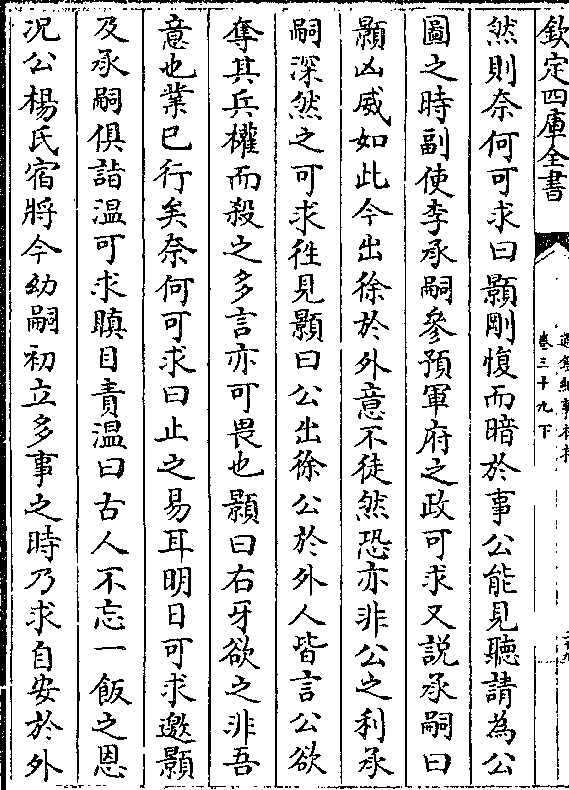 欽定四庫全書
卷三十九下
然則奈何可求曰顥剛愎而暗於事公能見聽請為公
圖之時副使李承嗣參預軍府之政可求又説承嗣曰
顥凶威如此今出徐於外意不徒然恐亦非公之利承
嗣深然之可求徃見顥曰公出徐公於外人皆言公欲
奪其兵權而殺之多言亦可畏也顥曰右牙欲之非吾
意也業已行矣奈何可求曰止之易耳明日可求邀顥
及承嗣俱詣温可求瞋目責温曰古人不忘一飯之恩
况公楊氏宿將今幼嗣初立多事之時乃求自安於外